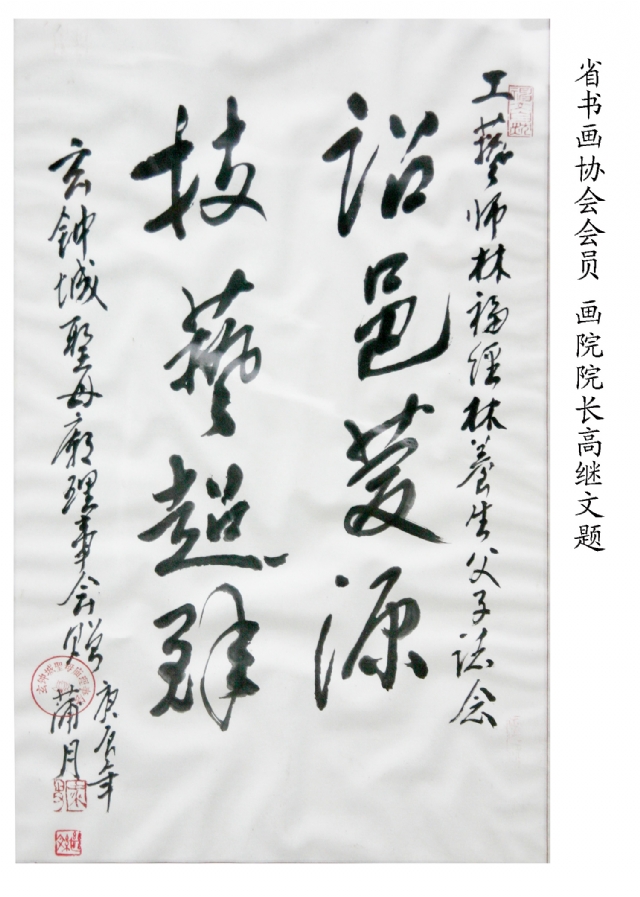 省书画协会会员 画院院长高继文题
工藝师林福经林養生父子誌念
诏邑發源
技藝超群
玄钟城聖母廟理事会赠
庚辰年
蒲月